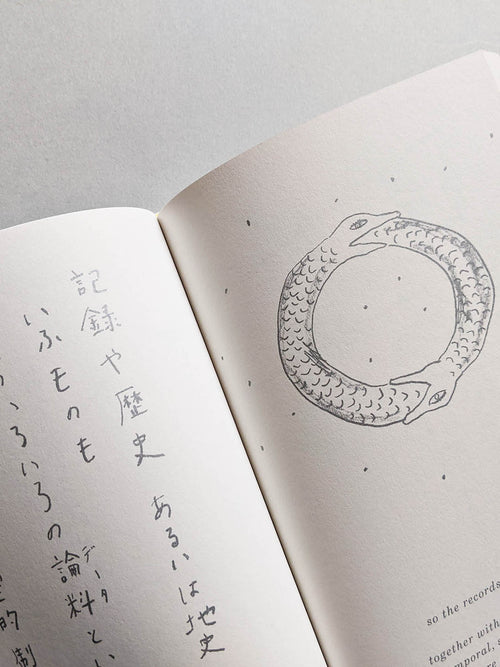 記録や歴史 あるいは地史
いふものも
いろいろの論料とい
データ
的制
so the records
together with